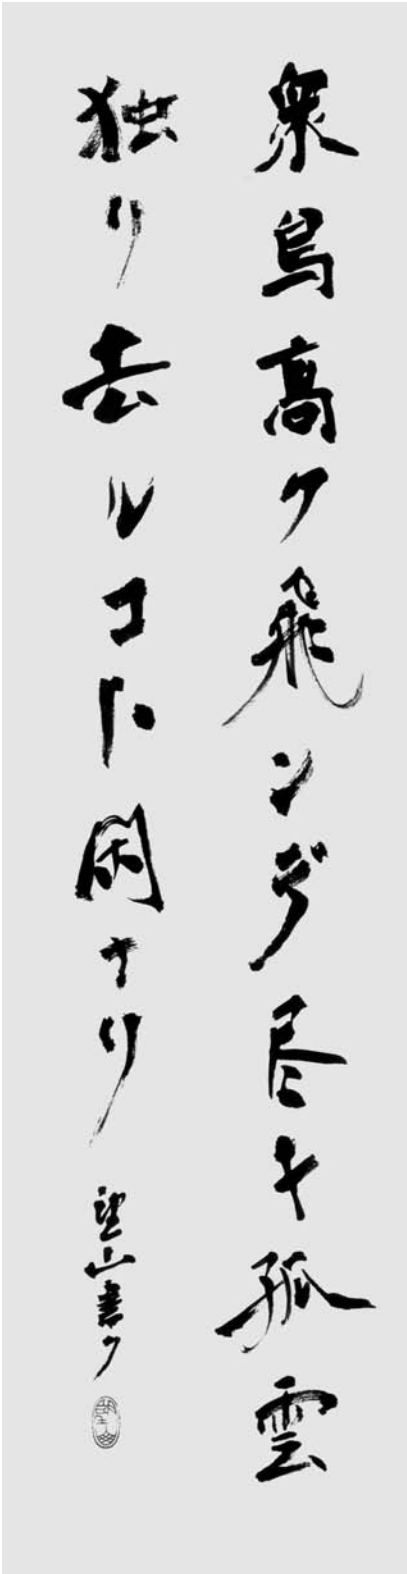 衆鳥高ク飛ンデ尽キ孤雲
独リ去ルコト閑ナリ
望山書ク